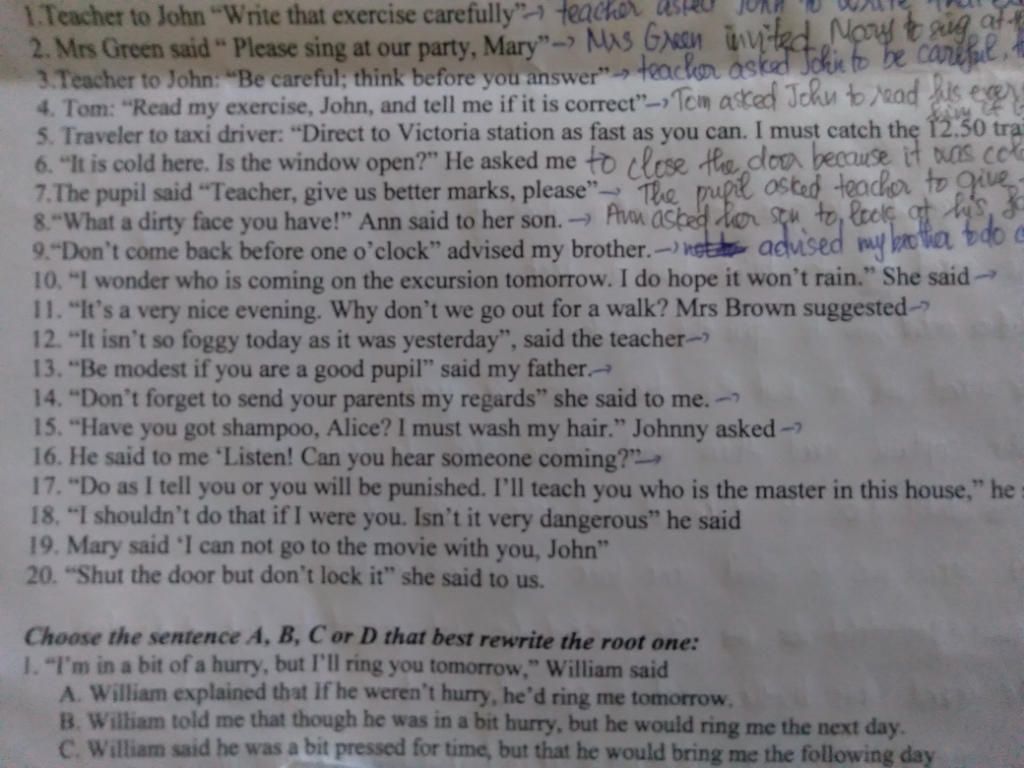 1.Teacher to John “Write that exercise carefully”→ teacher asked John to write that
2. Mrs Green said “ Please sing at our party, Mary”→ Mrs Green invited Mary to sing at
3.Teacher to John: “Be careful; think before you answer”→ teacher asked John to be careful,
4. Tom: “Read my exercise, John, and tell me if it is correct”→ Tom asked John to read his
5. Traveler to taxi driver: “Direct to Victoria station as fast as you can. I must catch the 12.50
6. “It is cold here. Is the window open?” He asked me to close the door because it was
7.The pupil said “Teacher, give us better marks, please”→ The pupil asked teacher to give
8.“What a dirty face you have!” Ann said to her son. → Ann asked her son to look at his
9.“Don’t come back before one o’clock” advised my brother.→ advised my brother to do
10. “I wonder who is coming on the excursion tomorrow. I do hope it won’t rain.” She said →
11. “It’s a very nice evening. Why don’t we go out for a walk? Mrs Brown suggested→
12. “It isn’t so foggy today as it was yesterday”, said the teacher→
13. “Be modest if you are a good pupil” said my father.→
14. “Don’t forget to send your parents my regards” she said to me. →
15. “Have you got shampoo, Alice? I must wash my hair.” Johnny asked →
16. He said to me ‘Listen! Can you hear someone coming?”→
17. “Do as I tell you or you will be punished. I’ll teach you who is the master in this house,” he
18. “I shouldn’t do that if I were you. Isn’t it very dangerous” he said
19. Mary said ‘I can not go to the movie with you, John”
20. “Shut the door but don’t lock it” she said to us.
Choose the sentence A, B, C or D that best rewrite the root one:
1. “I’m in a bit of a hurry, but I’ll ring you tomorrow,” William said
A. William explained that If he weren’t hurry, he’d ring me tomorrow.
B. William told me that though he was in a bit hurry, but he would ring me the next day.
C. William said he was a bit pressed for time, but that he would bring me the following day